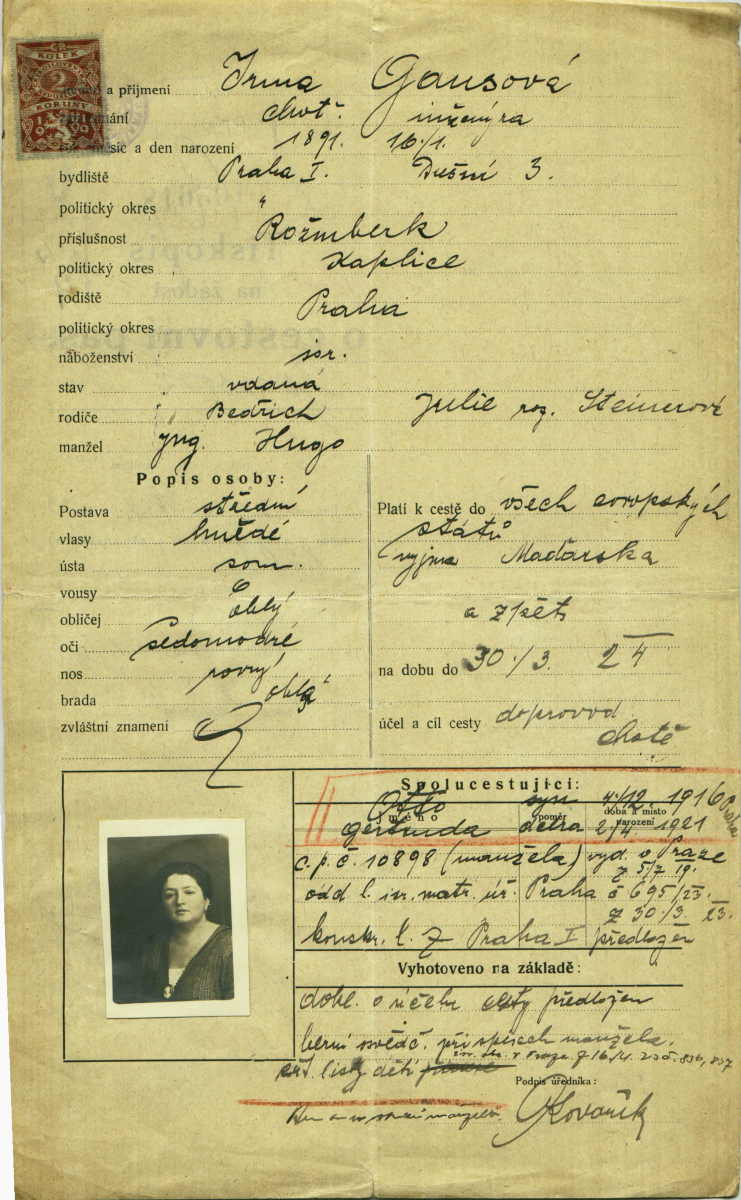 KOLEK
2
KORUNY
1919
a příjmení Irma Gansová
choť inženýra
a den narození 1891. 16./1.
bydliště Praha I. Dušní 3.
politický okres "
příslušnost Rožmberk
politický okres Kaplice
rodiště Praha
politický okres
náboženství isr.
stav vdaná
rodiče Bedřich Julie roz. Steinerové
manžel Ing. Hugo
Popis osoby:
Postava střední
vlasy hnědé
ústa soum.
vousy
obličej oblý
oči šedomodré
nos rovný
brada oblá
zvláštní znamení
Platí k cestě do všech evropských
států
vyjma Maďarska
a zpět
na dobu do 30./3. 24
účel a cíl cesty doprovod
chotě
Spolucestující:
Otto syn 4/12. 1916 Praha
jméno poměr doba a místo narození
Gertruda dcera 2/4 1921
c. p. č. 10898 (manžela) vyd. v Praze
z 5/7 19.
odd l. isr. matr. úř. Praha č 695/23.
z 30/3. 23.
konskr. l. z Praha I předložen
Vyhotoveno na základě:
dokl. o účelu cesty předložen
berní osvědč. při spisech manžela.
v Praze z 16/4. 23 č. 836, 837
křt. listy dětí
Podpis úředníka:
Kovařík